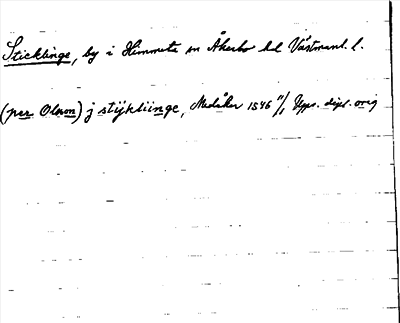 Sticklinge, by i Himmeta sn Åkerbo hd Västmanl. l.
(per Olsson) j stÿkliinge, Medåker 1546 11/1 Upps. dipl. orig